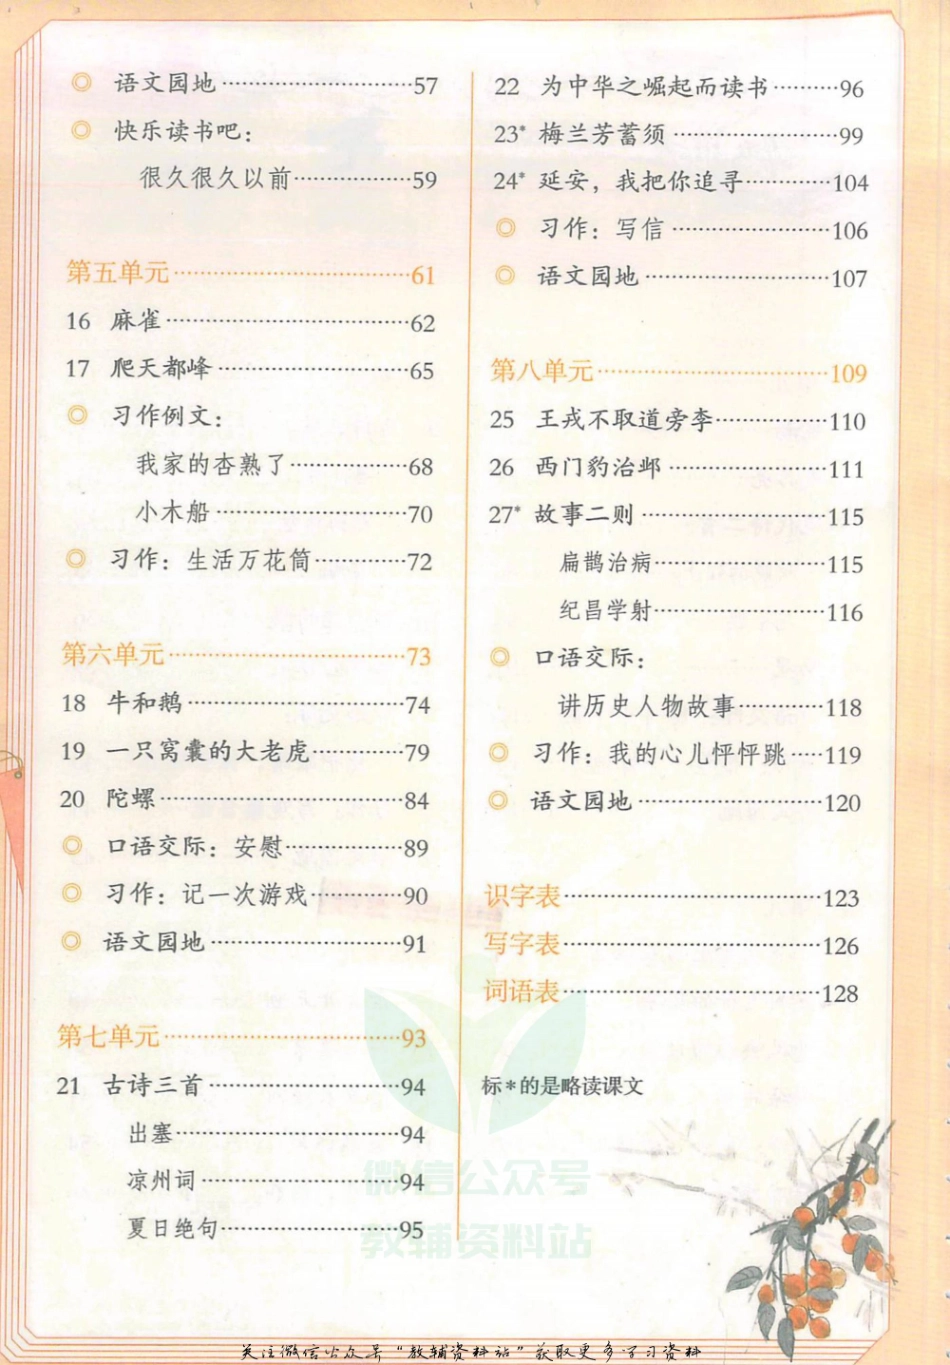 ◎ 语文园地……………………57
◎ 快乐读书吧：
很久很久以前………………59
第五单元…………………………61
16 麻雀…………………………62
17 爬天都峰……………………65
◎ 习作例文：
我家的杏熟了………………68
小木船……………………70
◎ 习作：生活万花筒…………72
第六单元…………………………73
18 牛和鹅………………………74
19 一只窝囊的大老虎…………79
20 陀螺…………………………84
◎ 口语交际：安慰……………89
◎ 习作：记一次游戏…………90
◎ 语文园地……………………91
第七单元…………………………93
21 古诗三首……………………94
出塞………………………94
凉州词……………………94
夏日绝句…………………95
22 为中华之崛起而读书………96
23* 梅兰芳蓄须…………………99
24* 延安，我把你追寻…………104
◎ 习作：写信…………………106
◎ 语文园地……………………107
第八单元…………………………109
25 王戎不取道旁李……………110
26 西门豹治邺…………………111
27* 故事二则……………………115
扁鹊治病…………………115
纪昌学射…………………116
◎ 口语交际：
讲历史人物故事…………118
◎ 习作：我的心儿怦怦跳……119
◎ 语文园地……………………120
识字表……………………………123
写字表……………………………126
词语表……………………………128
标*的是略读课文
微信公众号
教辅资料站
关注微信公众号“教辅资料站”获取更多学习资料